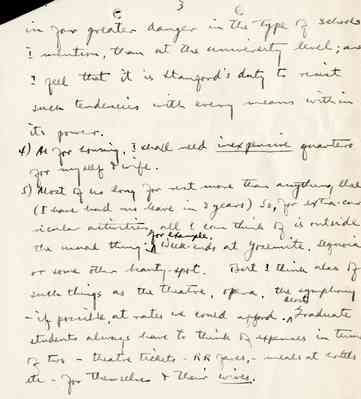 3
in far greater danger in the type of schools
I mention, than at the university level; and
I feel that it is Stanford's duty to resist
such tendencies with every means within
its power.
4) As for housing, I shall need inexpensive quarters
for myself & wife.
5) Most of us long for rest more than anything else
(I have had no leave in 3 years) So, for extra-cur-
ricular activities all I can think of is outside
the usual thing: for example, Week-ends at Yosemite, Sequoia
or some other beauty-spot. But I think also of
such things as the theatre, opera, the symphony
- if possible, at rates we could afford. Graduate
students always have to think of expenses in terms
of two - theatre tickets - RR fares, - meals at hotels
etc - for themselves & their wives.